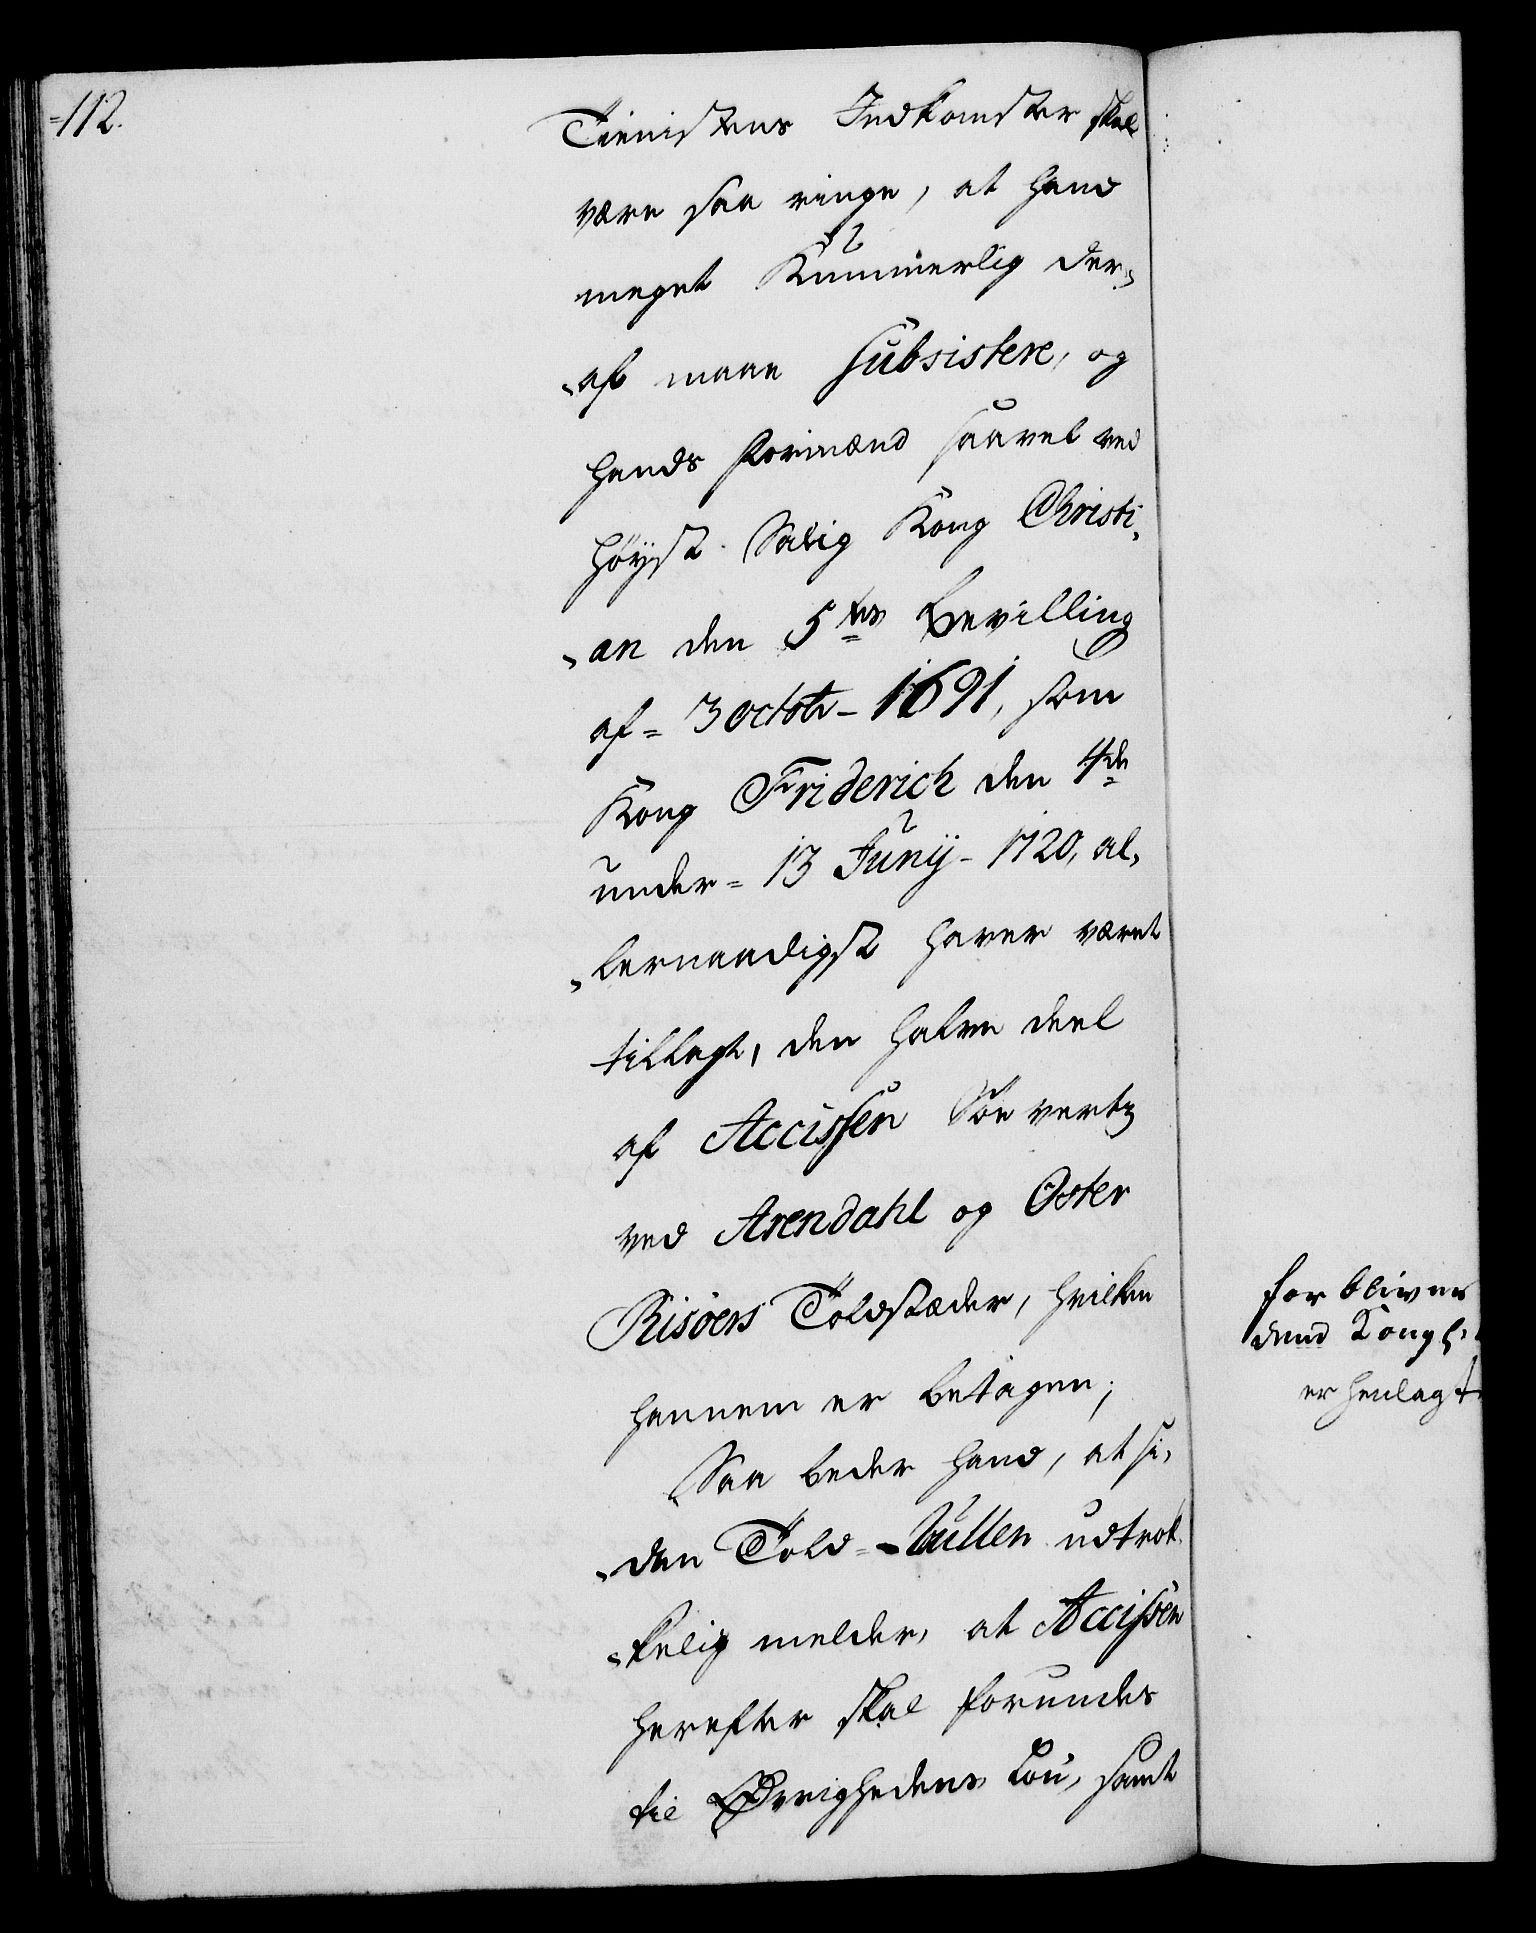 112.
Tienistens Indkomster skal
være saa ringe, at hand
meget Kummerlig der„
„af maae Subsistere, og
hands Formænd saavel ved
høyst Salig Kong Christi„
„an den 5tes Bevilling
af = 3 octobr - 1691, som
Kong Friderich den 4de
under = 13 Junij - 1720, al„
„lernaadigst haver været
tillagt, den halve deel
af Accissen Søe verts
ved Arendahl og Oster
Risöers Toldstæder, hvilken
hannem er betagen;
Saa beder hand, at si„
„den Told = Rullen udtrøk„
„kelig melder, at Accissen
herefter skal forundes
til Øvrighedens Løn, samt
for bliver
dend Kongl.
er henlagt